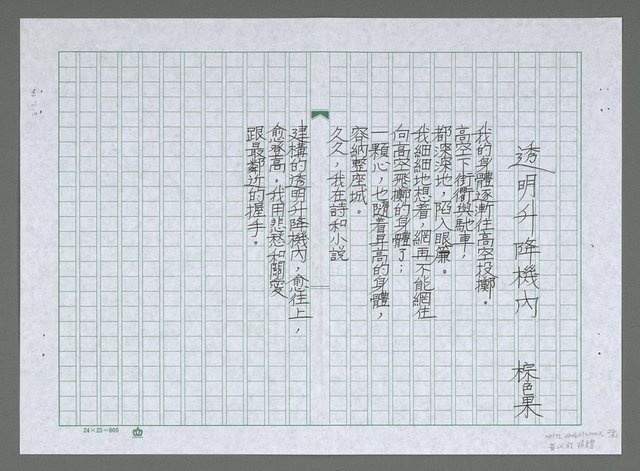 透明升降機內
棕色果
我的身體逐漸往高空投擲。
高空下街衢與馳車，
都深深地，陷入眼簾。
我細細地想着，網再不能網住
向高空飛擲的身體了；
一顆心，也隨着昇高的身體，
容納整座城。
久久，我在詩和小說
建構的透明升降機內，愈往上，
愈登高。我用悲愁和關愛
跟最鄰近的握手。
24×25=600